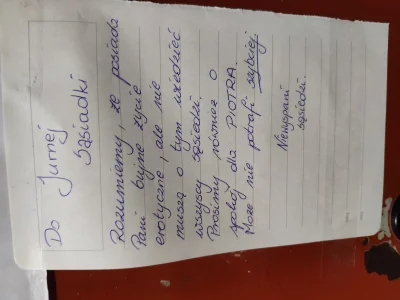 Do Jurnej
Sąsiadki
Rozumiemy, że posiada
Pani bujne życie
erotyczne, ale nie
muszą o tym wiedzieć
wszyscy sąsiedzi.
Prosimy również o
spokój dla PIOTRA.
Może nie potrafi szybciej
Niewyspani
sąsiedzi.